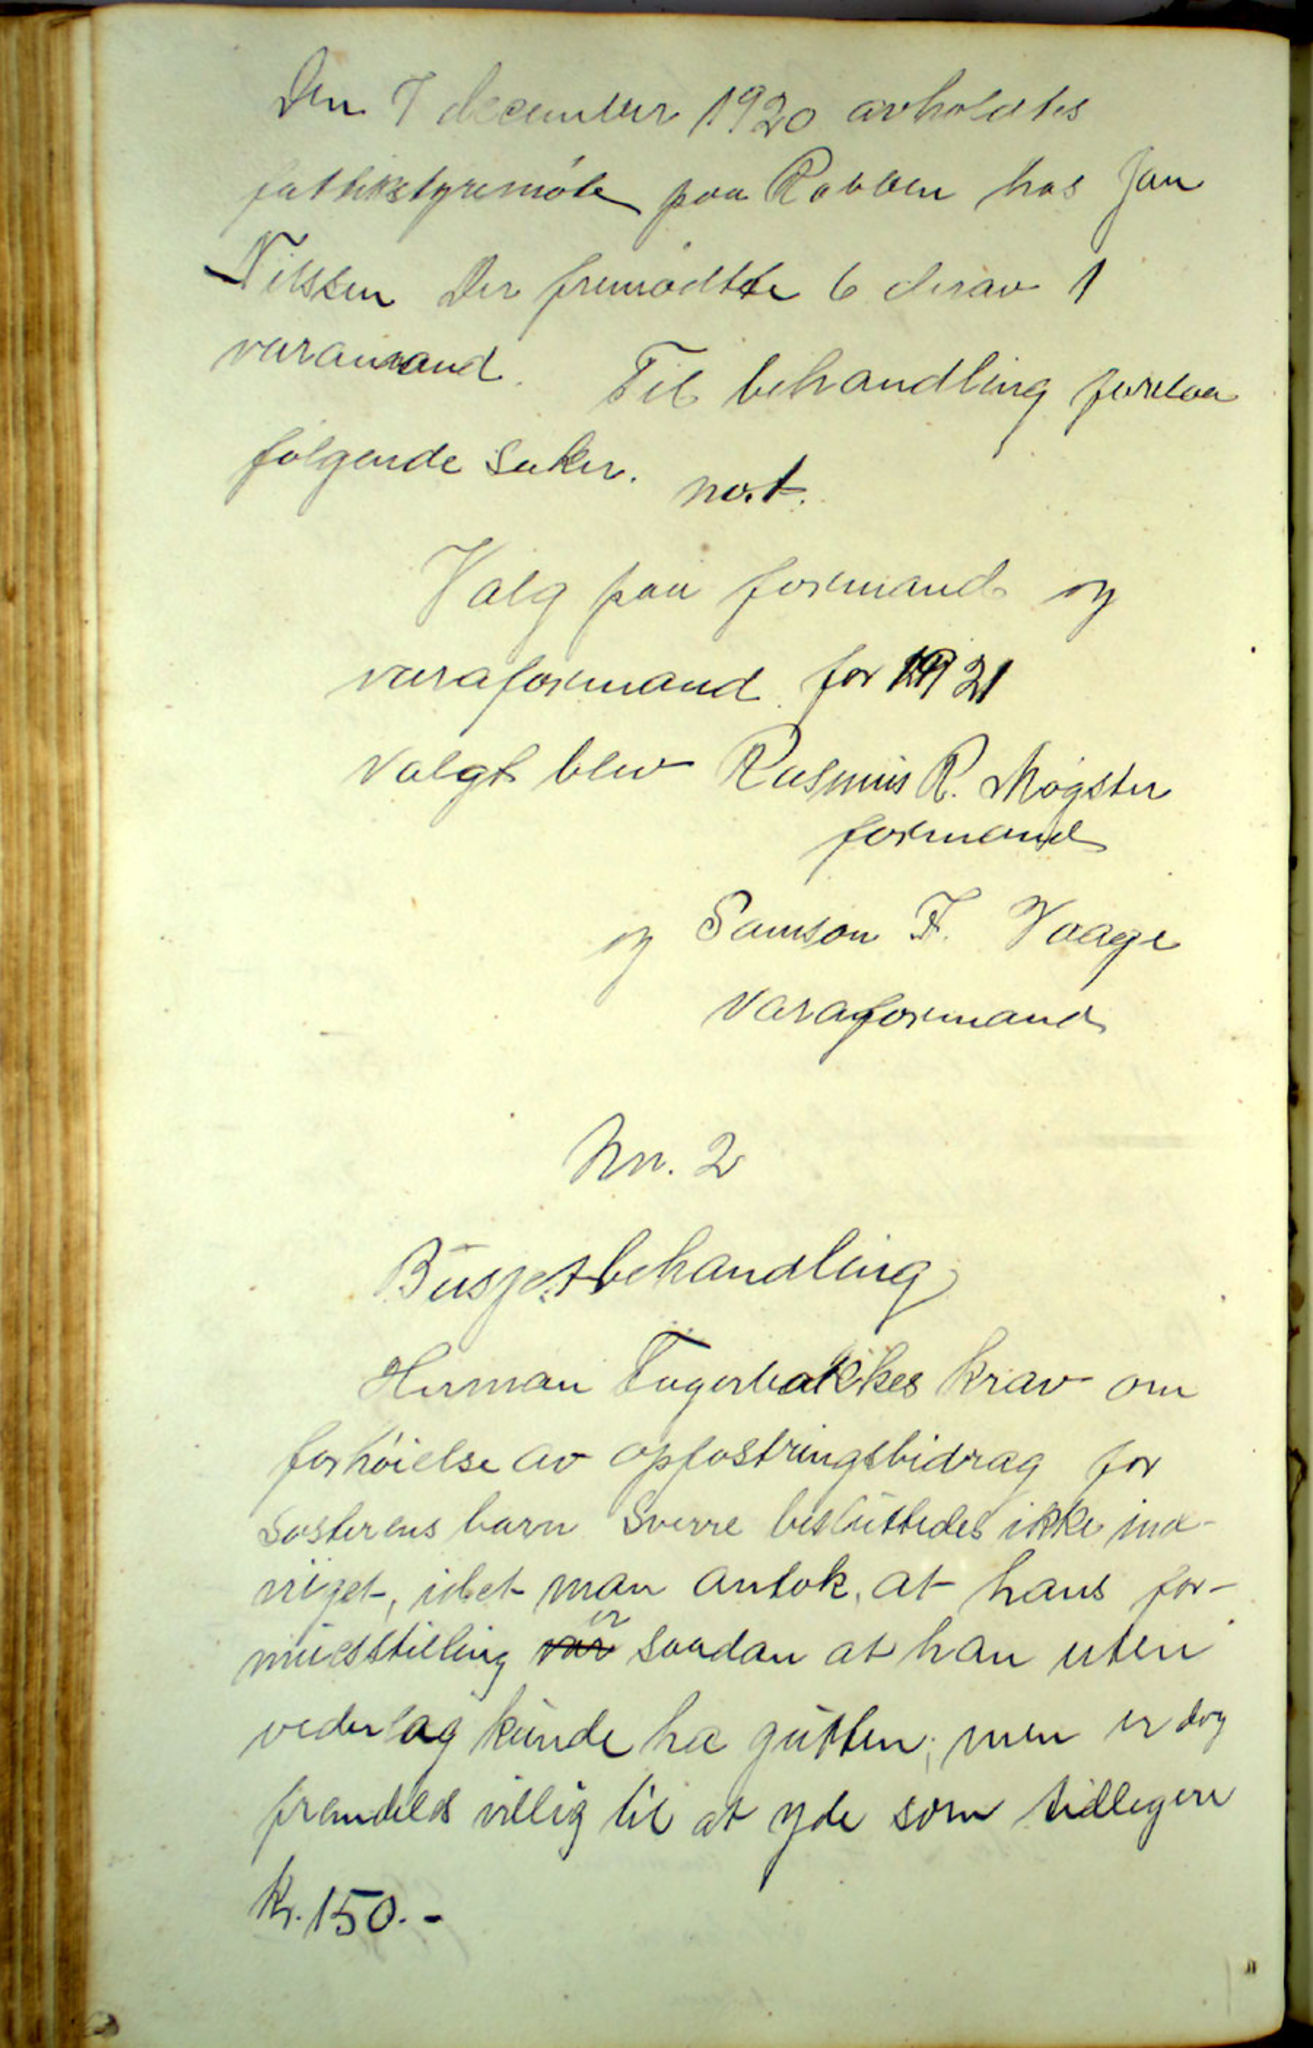 Den 7 december 1920 avholdtes
fattikstyremöte paa Rabben hos Jan
Nilssen Der fremödtte 6 derav 1
varamand. Til behandling forelaa
følgende saker. no. 1.
Valg paa formand og
varaformand for 1921
valgt blev Rasmus R. Møgster
formand
og Samson F. Vaage
varaformand
Nr. 2
Busjetbehandling
Herman Fagerbakkes krav om
forhöielse av opfostringsbidrag for
søsterens barn Sverre besluttedes ikke ind-
vilget, idet man antok, at hans for-
muesstilling var er saadan at han uten
vederlag kunde ha gutten; men er dog
fremdeles villig til at yde som tidligere
kr. 150.-